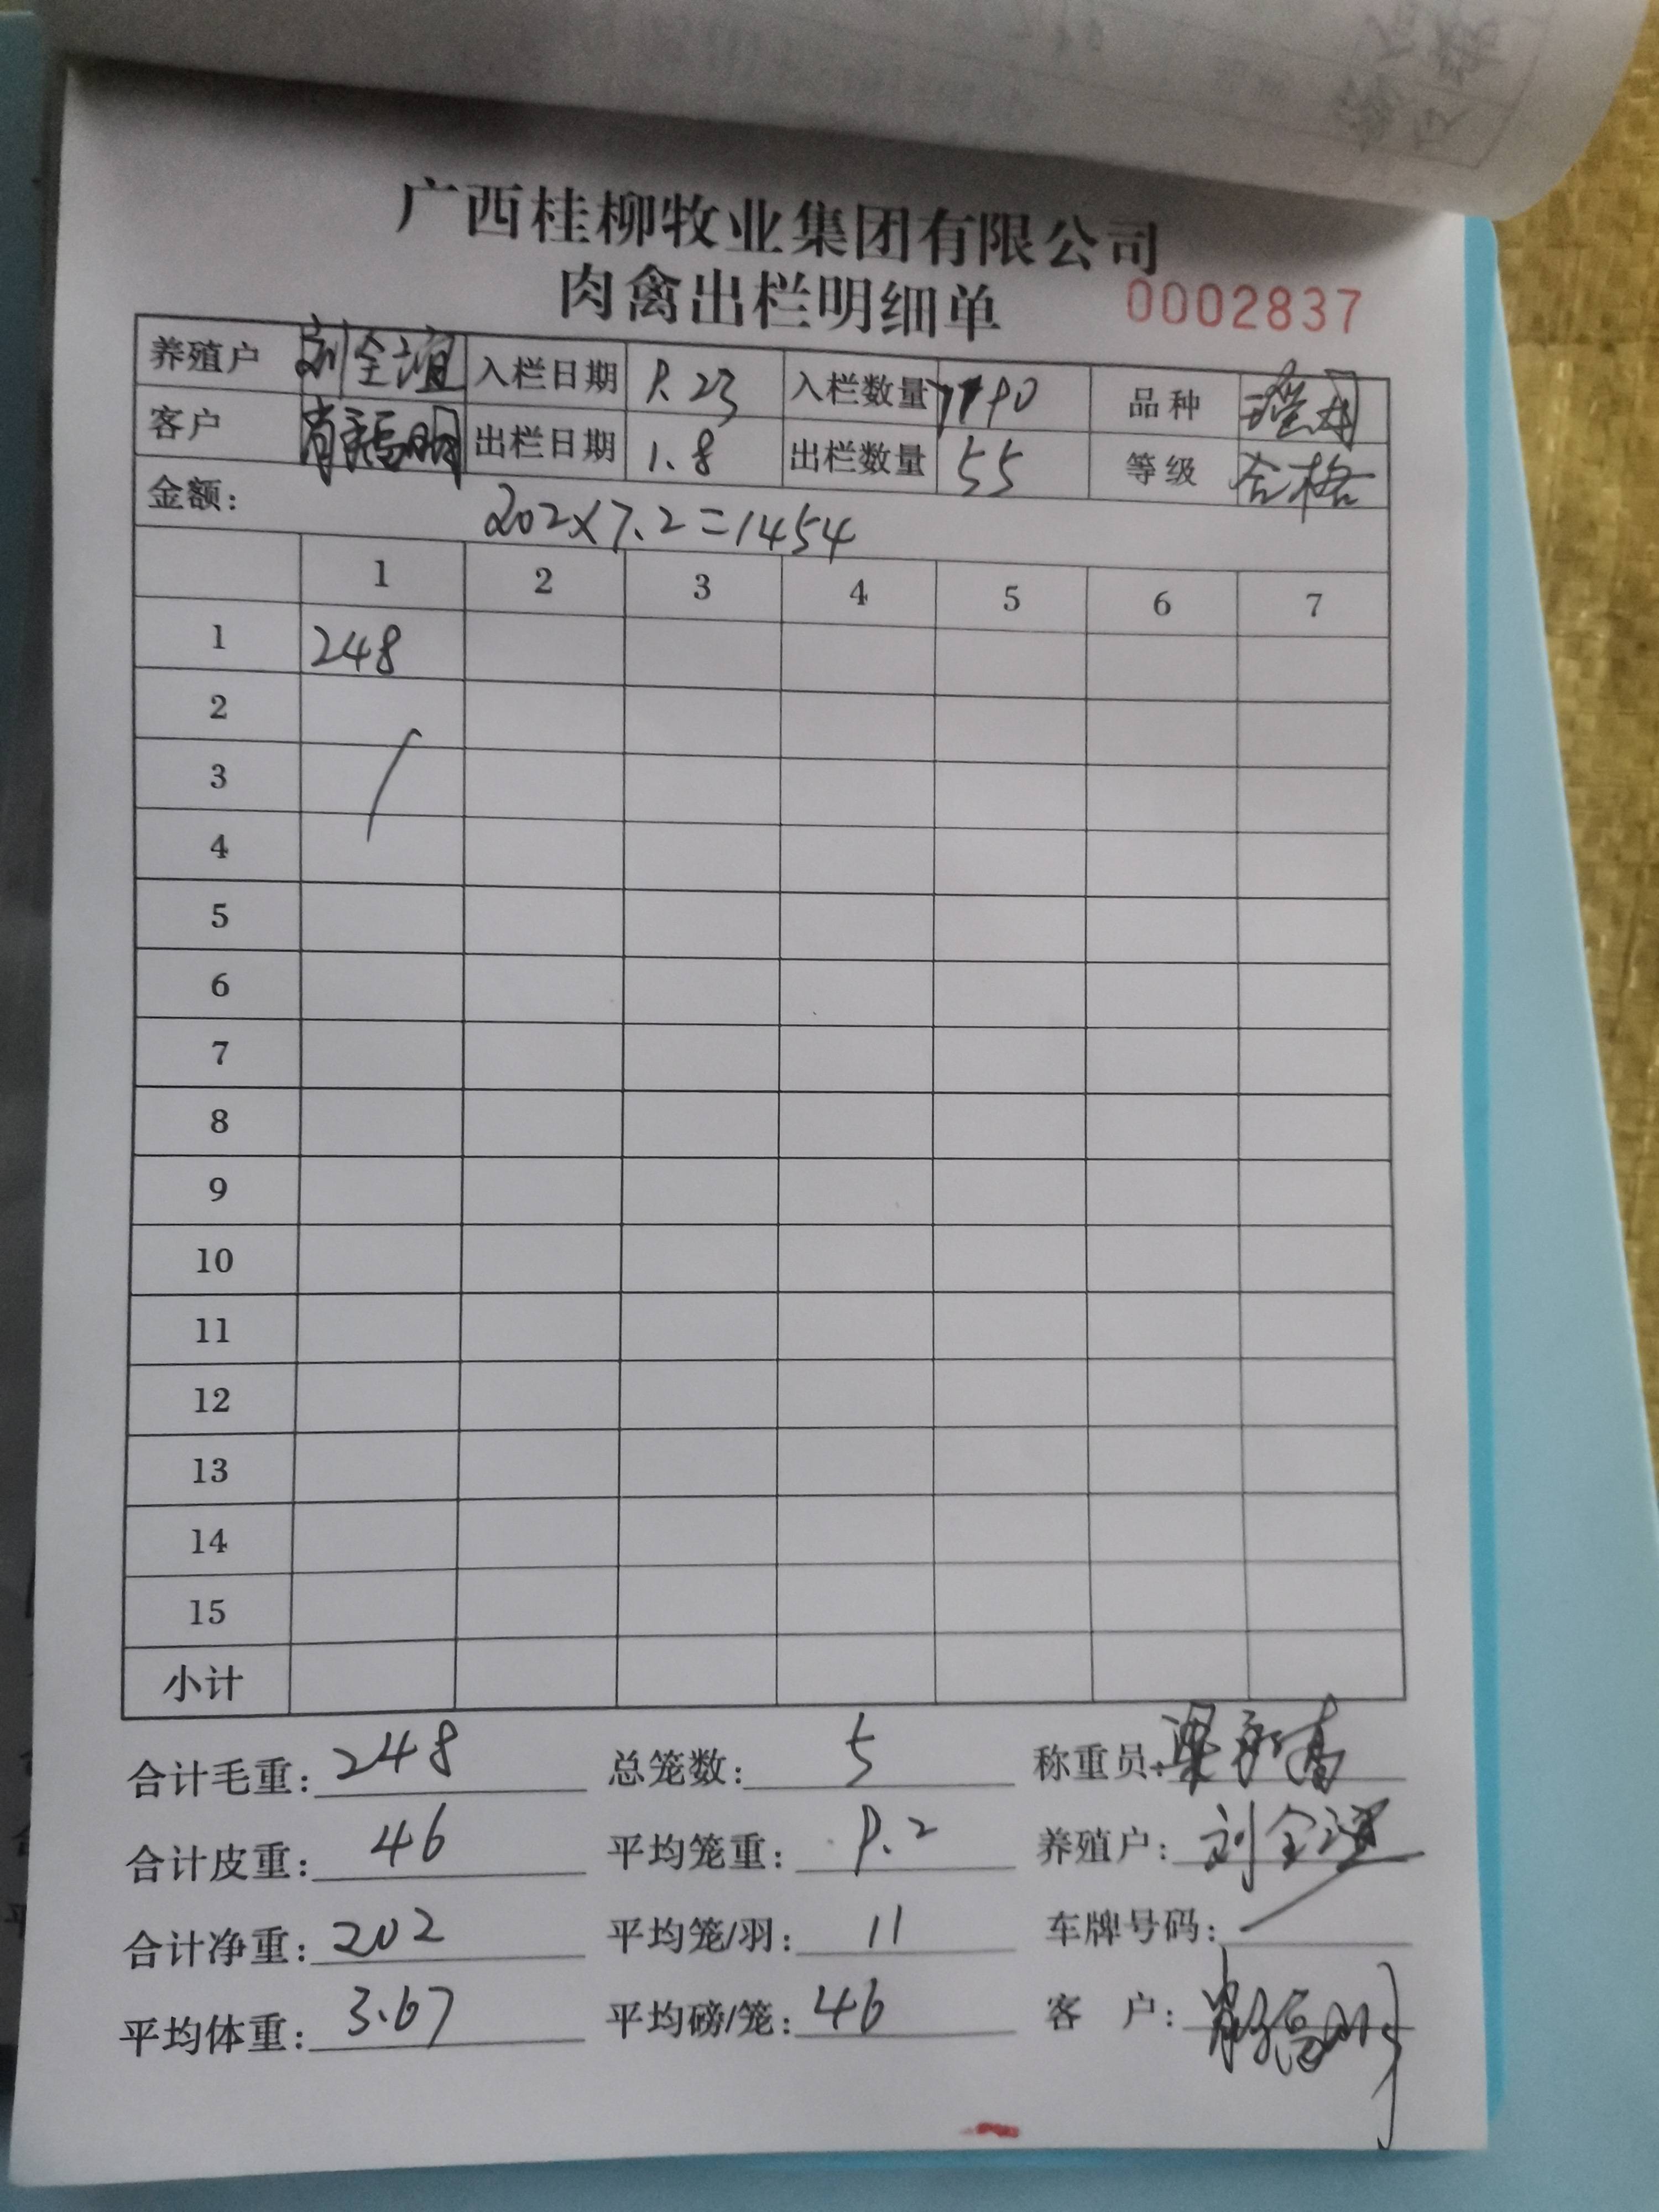 广西桂柳牧业集团有限公司
肉禽出栏明细单 0002837
养殖户 刘全谊 入栏日期 9.23 入栏数量 品种
客户 肖福明 出栏日期 1.8 出栏数量 55 等级 合格
金额: 202×7.2=1454
1 2 3 4 5 6 7
1 248
2
3
4
5
6
7
8
9
10
11
12
13
14
15
小计
合计毛重: 248 总笼数: 5 称重员:
合计皮重: 46 平均笼重: 9.2 养殖户: 刘全谊
合计净重: 202 平均笼/羽: 11 车牌号码:
平均体重: 3.67 平均磅/笼: 46 客 户: 肖福明